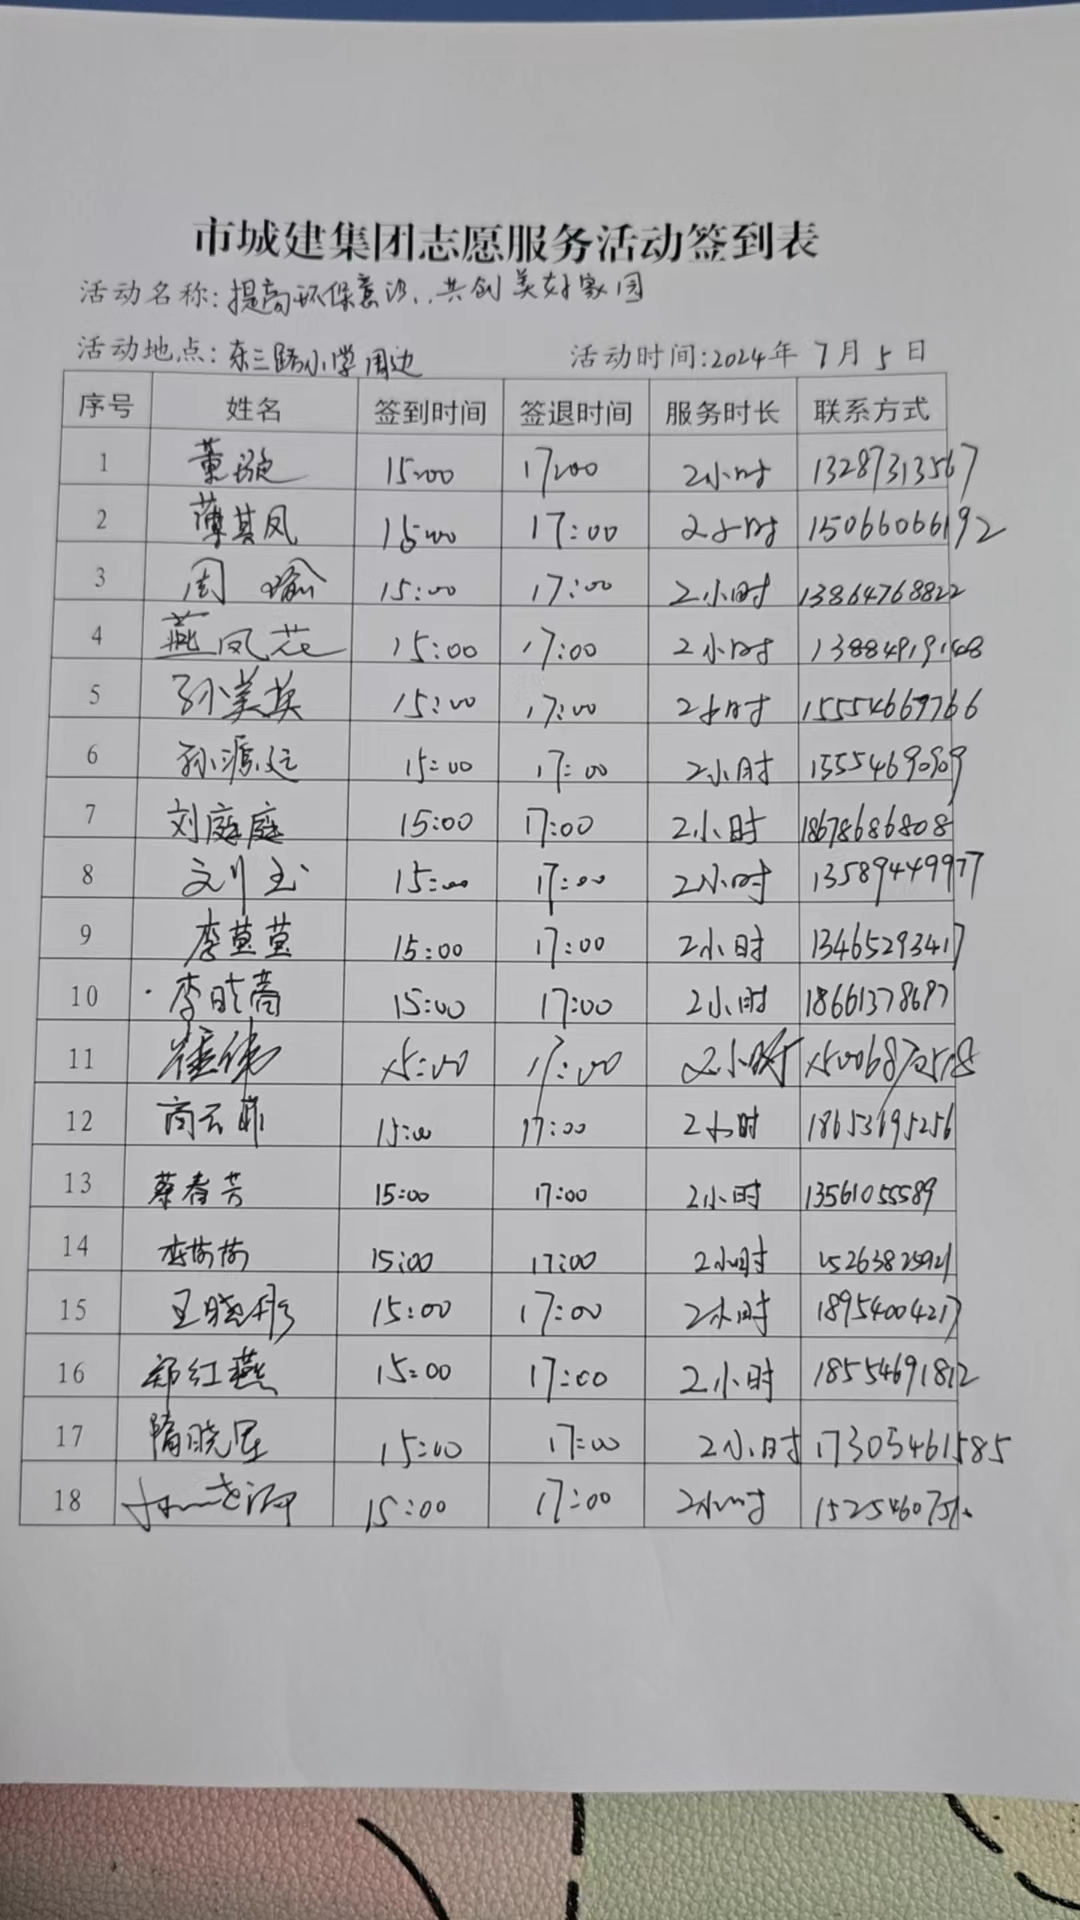 市城建集团志愿服务活动签到表
活动名称:提高环保意识,共创美好家园
活动地点:东三路小学周边 活动时间:2024年7月5日
序号 姓名 签到时间 签退时间 服务时长 联系方式
1 董璇 15:00 17:00 2小时 13287313567
2 薄其凤 15:00 17:00 2小时 15066066192
3 周瑜 15:00 17:00 2小时 13864768822
4 燕凤花 15:00 17:00 2小时 13884919148
5 孙美英 15:00 17:00 2小时 15554669766
6 孙源远 15:00 17:00 2小时 15554690909
7 刘庭庭 15:00 17:00 2小时 18678686808
8 刘玉 15:00 17:00 2小时 13589449977
9 李莹莹 15:00 17:00 2小时 13465293417
10 李晓 15:00 17:00 2小时 18661378697
11 崔伟 15:00 17:00 2小时
12 商云菲 15:00 17:00 2小时 18653695256
13 蔡春芳 15:00 17:00 2小时 13561055589
14 李荷荷 15:00 17:00 2小时 15263825921
15 王晓彤 15:00 17:00 2小时 18954004217
16 郑红燕 15:00 17:00 2小时 18554691812
17 隋晓 15:00 17:00 2小时 17305461585
18 15:00 17:00 2小时